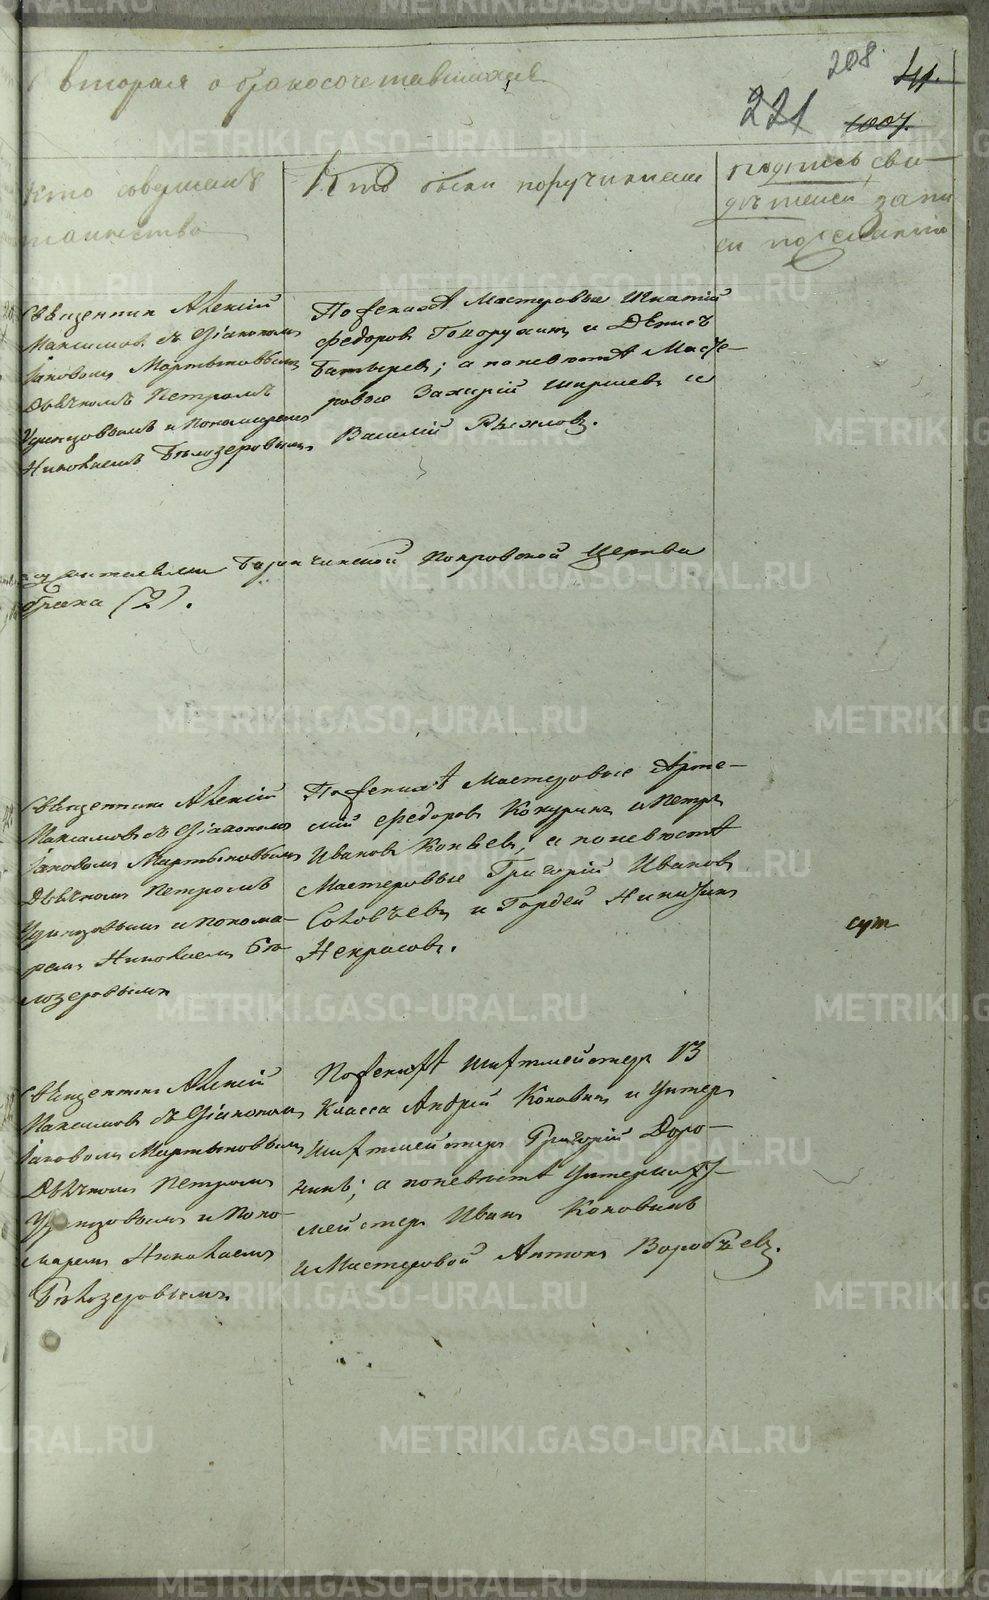 вторая о бракосочетавшихся
208. 41.
221 1007.
Кто совершалъ
таинство
Кто были поручители
подпись сви-
дѣтелей запи
си по желанию
Священникъ Алексій
Максимовъ съ Діакономъ
Іаковомъ Мартыновымъ
Дьячкомъ Петромъ
Удинцовымъ и Пономаремъ
Николаемъ Бѣлозеровымъ
По женихѣ Мастеровые Игнатій
Федоровъ и Денисъ
Батыревъ; а по невѣстѣ Масте-
ровые Захарій Ширшевъ и
Василій Рыжловъ.
Баранчинской Покровской Церкви
брака (2).
Священникъ Алексій
Максимовъ съ Діакономъ
Іаковомъ Мартыновымъ
Дьячкомъ Петромъ
Удинцовымъ и Понома-
ремъ Николаемъ Бѣ-
лозеровымъ
По женихѣ Мастеровые Арте-
мій Федоровъ Кокуринъ и Петръ
Ивановъ Копьевъ; а по невѣстѣ
Мастеровые Григорій Ивановъ
Соловьевъ и Гордей Никитинъ
Некрасовъ.
Священникъ Алексій
Максимовъ съ Діакономъ
Іаковомъ Мартыновымъ
Дьячкомъ Петромъ
Удинцовымъ и Поно-
маремъ Николаемъ
Бѣлозеровымъ.
По женихѣ Шихтмейстеръ 13
класса Андрей Коковинъ и Унтеръ
шихтмейстеръ Григорій Доро-
нинъ; а по невѣстѣ Унтершихт-
мейстеръ Иванъ Коковинъ
и Мастеровой Антонъ Воробьевъ.
METRIKI.GASO-URAL.RU